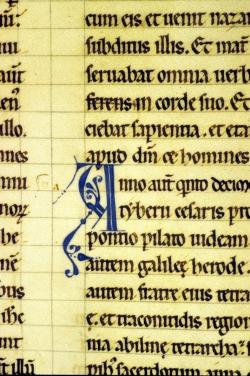 mu
aũt
eñ
illo.
nnes
mni
norꝝ
he
be
ihe
illũ
cum eis et uenit nazar
subditus illis. Et mat̃
seruabat omnia uerb
ferens in corde suo. Et
ciebat sapientia. et eta
apud dm̃ et homines
Anno aut̃ qnto decio
tyberii cesaris pro
pontio pilato iudeam
autem galileę herode.
autem fratre eius tetra
ę. et traconitidis region
ma abiline tetrarcha. s
pib; sacerdotum